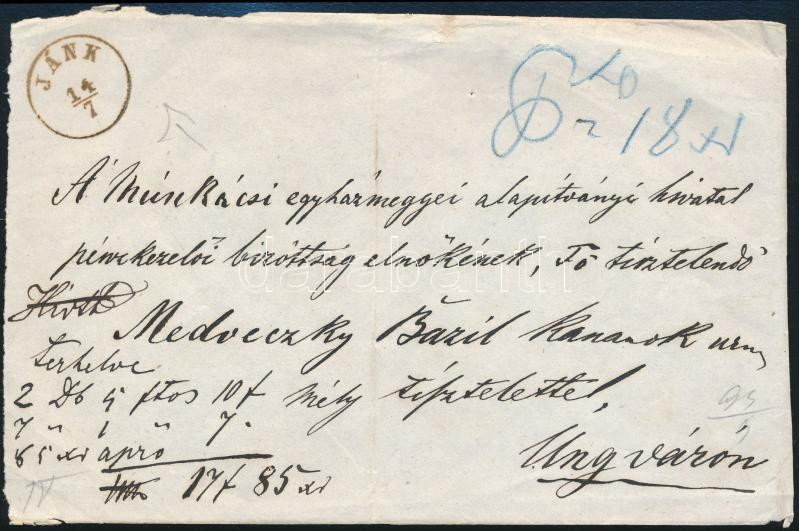 JÁNK
14/7
18 xr
A Munkácsi egyházmegyei alapítványi hivatal
pénzkezelői bizottság elnökének, Fő tisztelendő
Medveczky Bazil kanonok urnak
terhelve
2 Db 5 ftos 10 f mély tisztelettel,
7 " 1 " 7.
85 xr apró
17 f 85 xr
Ungváron
darabanth